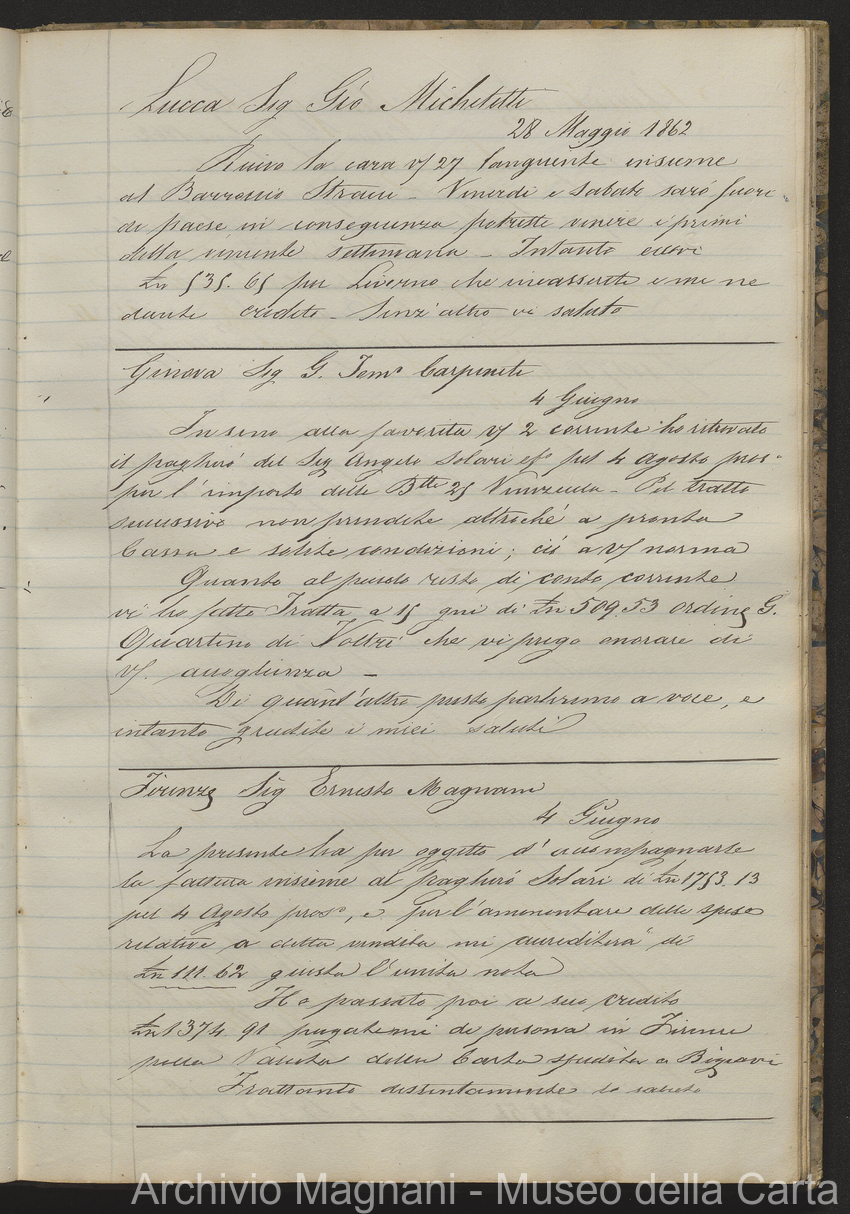 Lucca Sig Gio Micheletti
28 Maggio 1862
Ricevo la cara V/ 27 languente insieme
al Barroccio Stracci - Venerdi e Sabato saró fuori
di paese in conseguenza potreste venire i primi
della veniente settimana - Intanto eccovi
Ln 535. 65 per Livorno che incasserete e me ne
darete credito - Senz'altro vi saluto
Genova Sig G. Tom° Carpineti
4 Giugno
In seno alla favorita V/ 2 corrente ho ritrovato
il pagheró del Sig Angelo Solari pel 4 Agosto pros°
per l'importo delle B.lle 25 - Pel tratto
successivo non prendete altroché a pronta
Cassa e solite condizioni; ció a V/ norma
Quanto al piccolo resto di conto corrente
vi ho fatto Tratta a 15 gni di Ln 509.53 ordine G.
Quartino di Voltri che vi prego onorare di
V/. accoglienza -
Di quant'altro presto parleremo a voce, e
intanto gradite i miei saluti
Firenze Sig Ernesto Magnani
4 Giugno
La presente ha per oggetto d'accompagnarle
la fattura insieme al pagheró Solari di Ln 1753.13
pel 4 Agosto pros°, e per l'ammontare delle spese
relative a detta vendita mi accrediterà di
Ln 111.62 giusta l'unita nota
Ho passato poi a suo credito
Ln 1374.91 pagatemi di persona in Firenze
pella Valuta della Carta spedita a Bigiavi
Frattanto distintamente la saluto
Archivio Magnani - Museo della Carta